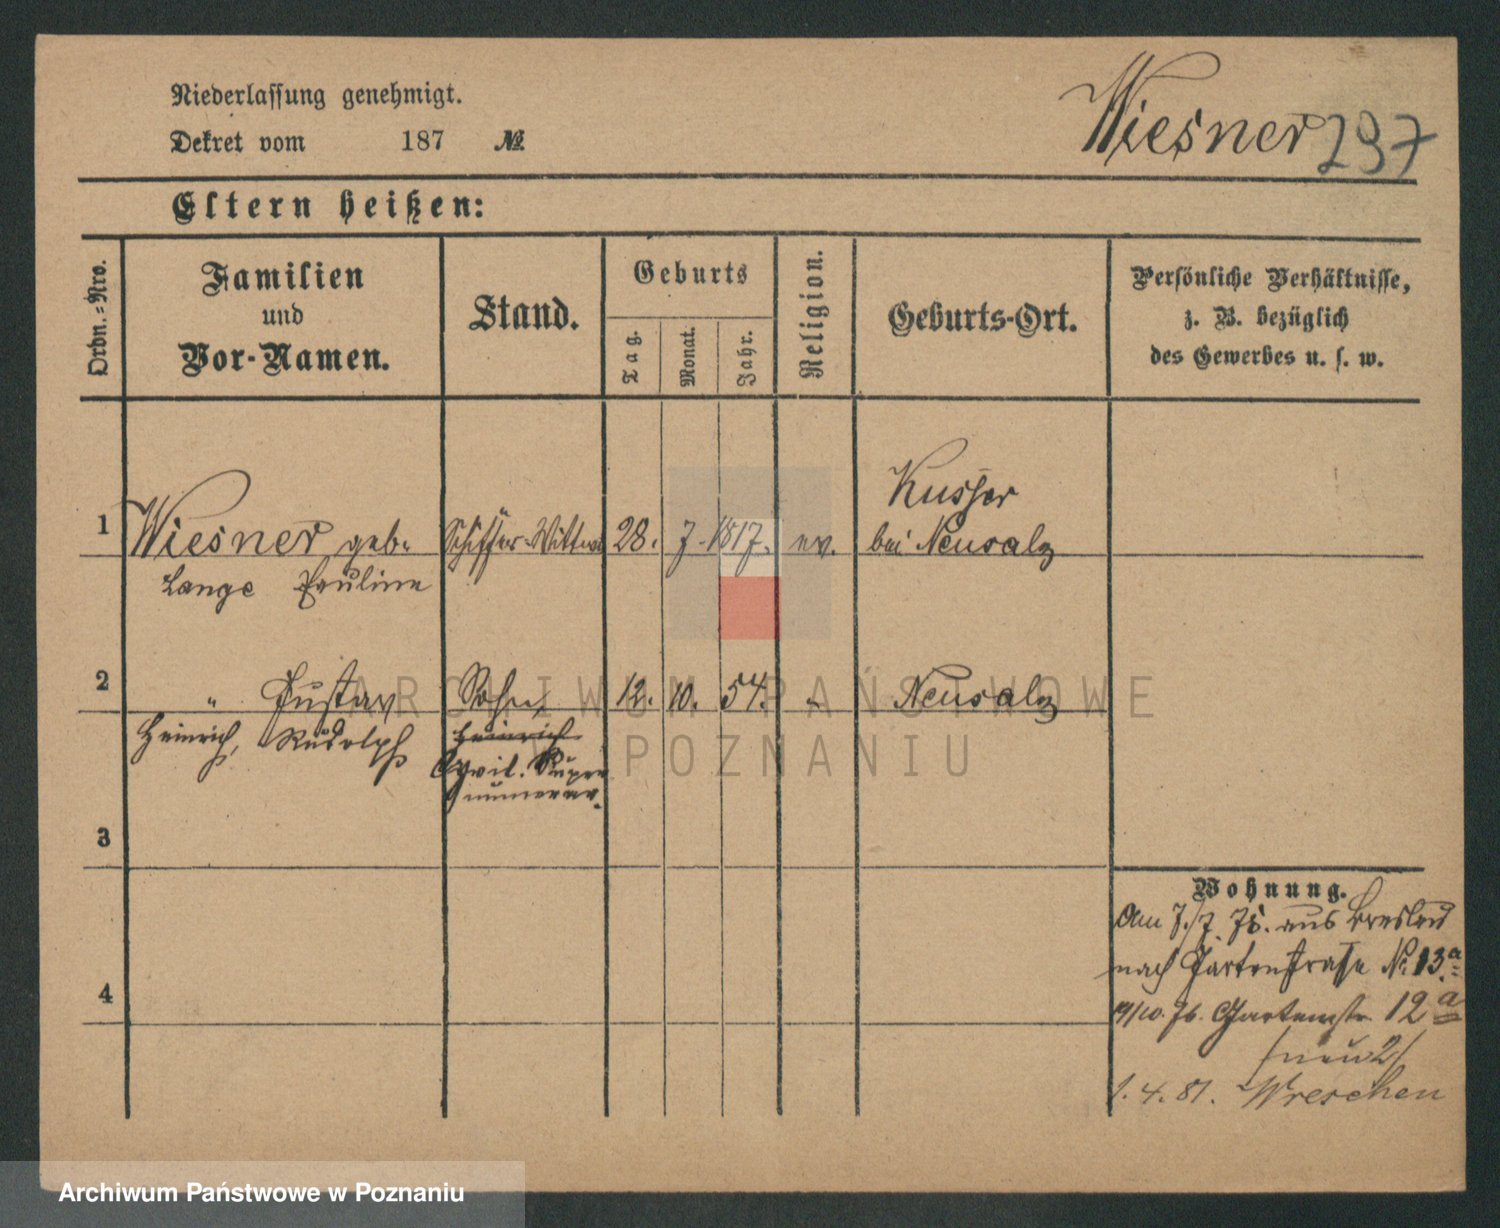 Niederlassung genehmigt.
Dekret vom 187 №
Wiesner 297
Eltern heißen:
Ordn.=Nro.
Familien
und
Vor-Namen.
Stand.
Geburts
Tag.
Monat.
Jahr.
Religion.
Geburts-Ort.
Persönliche Verhältnisse,
z. B. bezüglich
des Gewerbes u. s. w.
1 Wiesner geb. Schiffer-Wittwe 28. 7. 1817. ev. Kusser
bei Neusalz
Lange Pauline
2 " Gustav Sohn 12. 10. 54. " Neusalz
Heinrich, Rudolph Heinrich
Civil. Super
numerar.
3
4
Wohnung.
Am 7./7. 76. aus Breslau
nach Gartenstraße № 13.a
19/10. 76. Gartenstr. 12 a
/neu 2/
1. 4. 81. Wreschen
ARCHIWUM PAŃSTWOWE
W POZNANIU
Archiwum Państwowe w Poznaniu